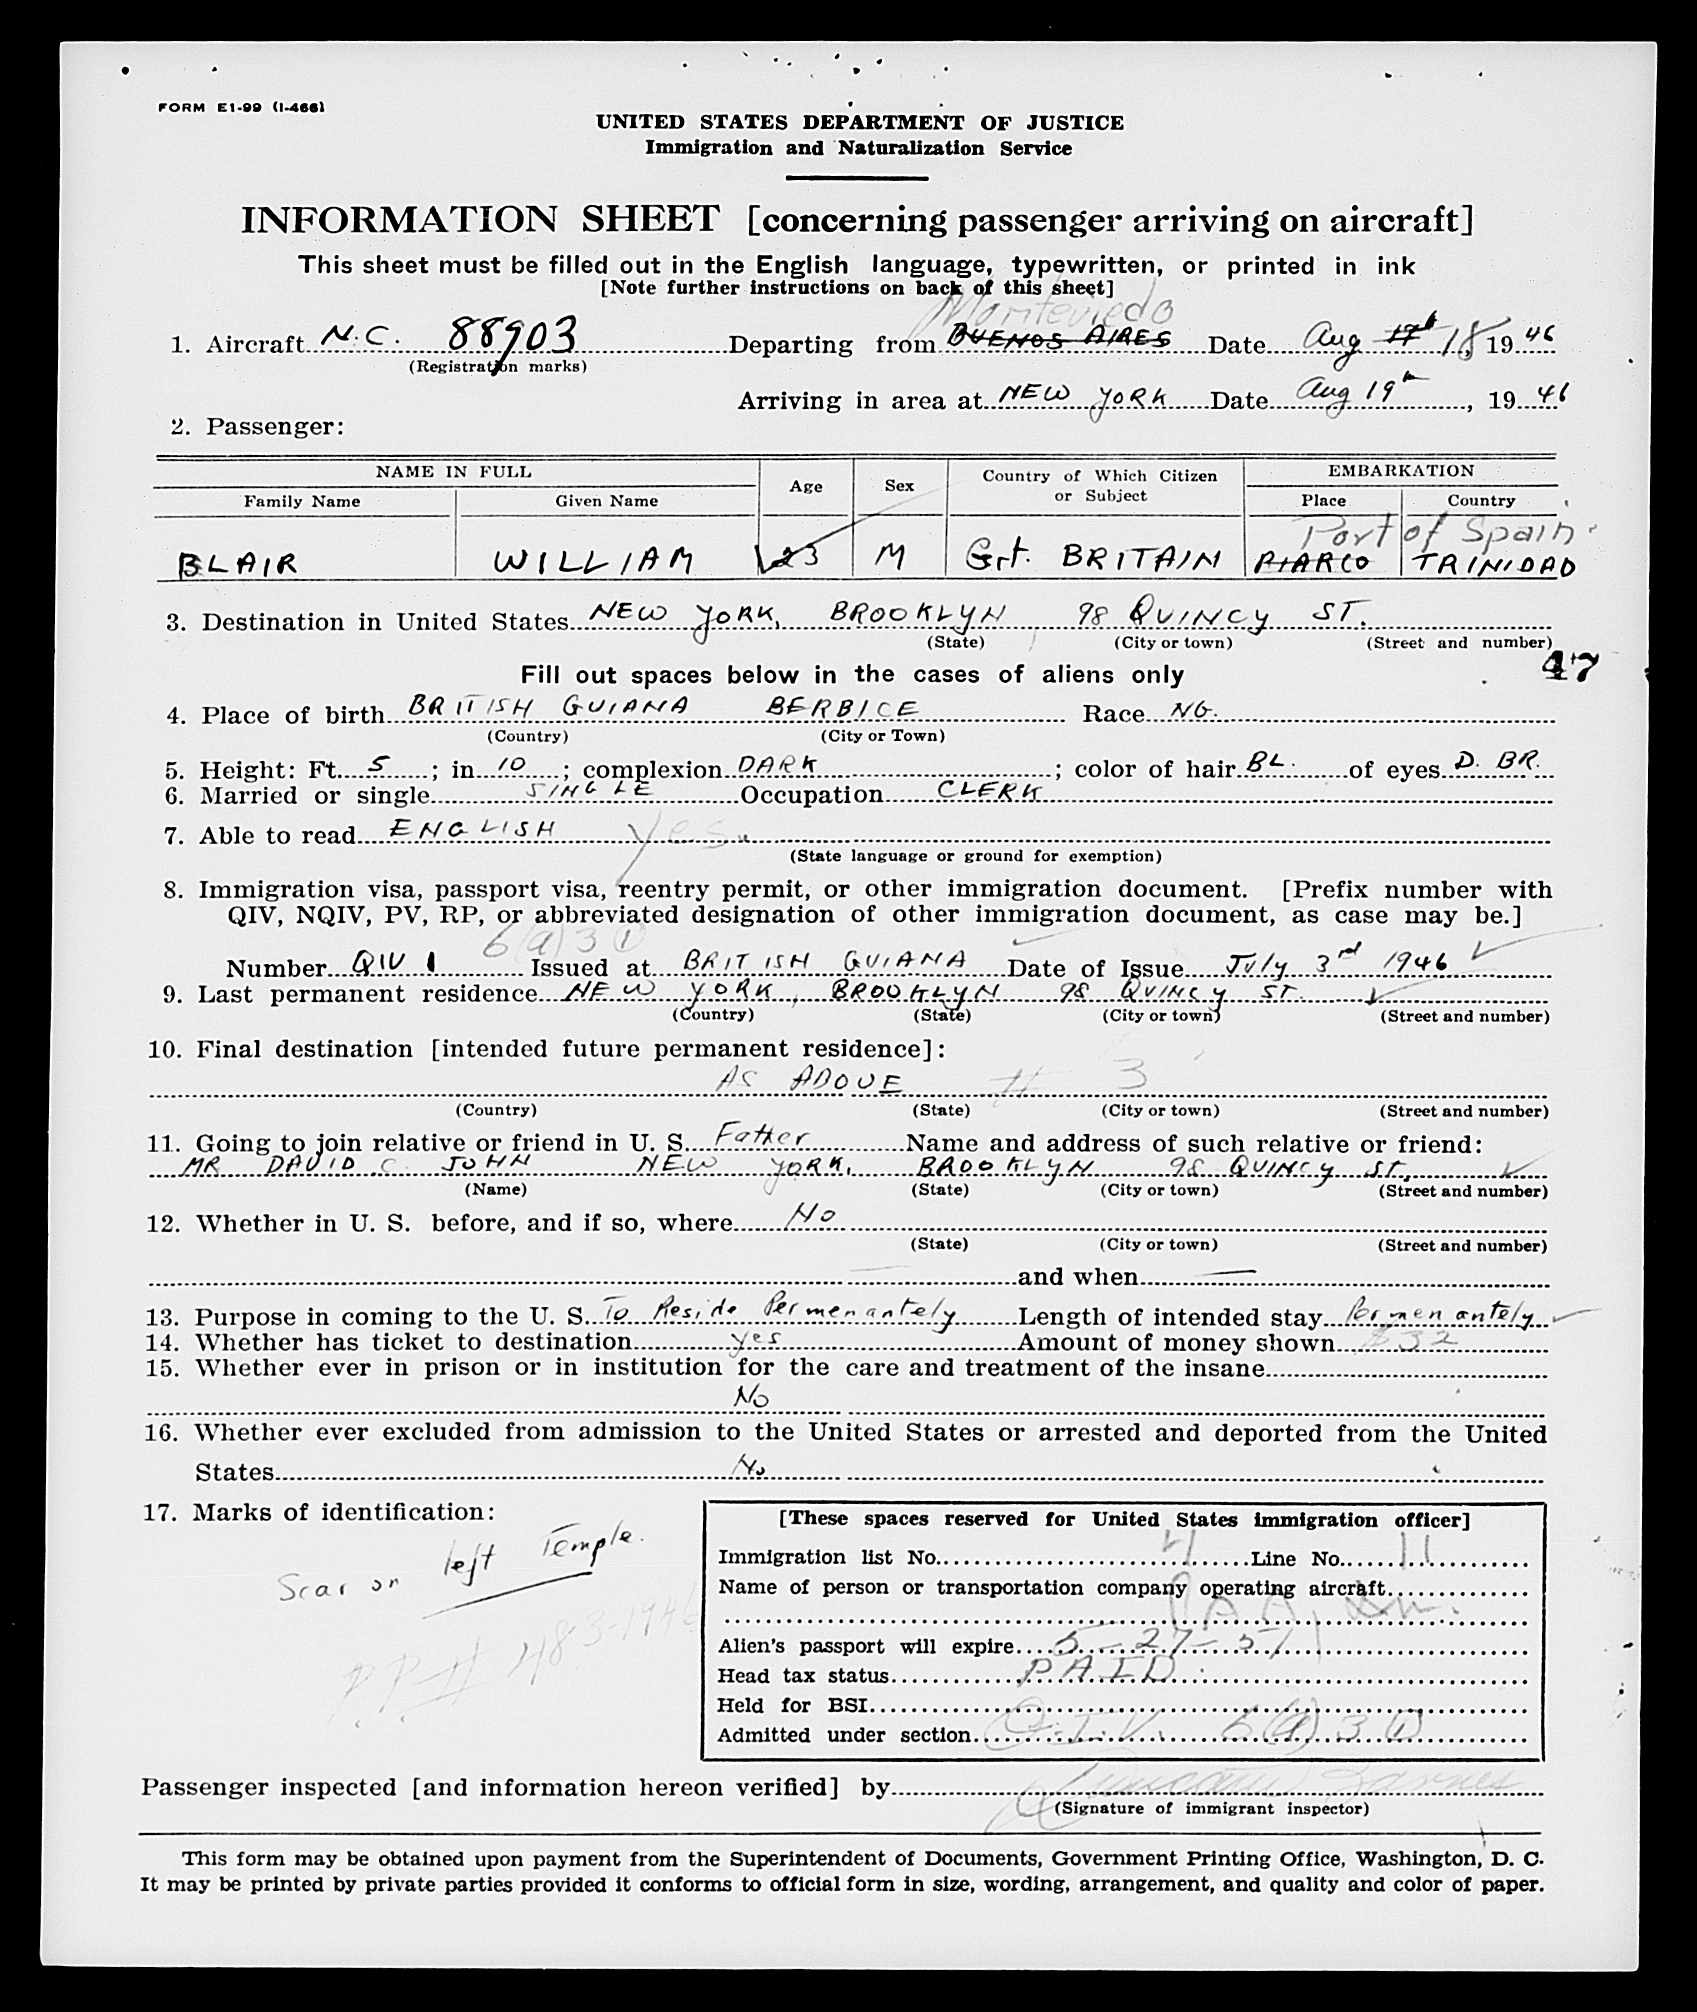 FORM E1-99 (I-466)
UNITED STATES DEPARTMENT OF JUSTICE
Immigration and Naturalization Service
INFORMATION SHEET [concerning passenger arriving on aircraft]
This sheet must be filled out in the English language, typewritten, or printed in ink
[Note further instructions on back of this sheet]
Montevideo
1. Aircraft N.C. 88903 Departing from BUENOS AIRES Date Aug 17th 18 1946
(Registration marks)
Arriving in area at NEW YORK Date Aug 19th, 1946
2. Passenger:
NAME IN FULL Age Sex Country of Which Citizen or Subject EMBARKATION
Family Name Given Name Place Country
Port of Spain
BLAIR WILLIAM 23 M Grt. BRITAIN PIARCO TRINIDAD
3. Destination in United States NEW YORK, BROOKLYN 98 QUINCY ST.
(State) (City or town) (Street and number)
Fill out spaces below in the cases of aliens only 47
4. Place of birth BRITISH GUIANA BERBICE Race NG.
(Country) (City or Town)
5. Height: Ft. 5; in. 10; complexion DARK; color of hair BL. of eyes D. BR.
6. Married or single SINGLE Occupation CLERK
7. Able to read ENGLISH Yes
(State language or ground for exemption)
8. Immigration visa, passport visa, reentry permit, or other immigration document. [Prefix number with
QIV, NQIV, PV, RP, or abbreviated designation of other immigration document, as case may be.]
6(a)3 (1)
Number QIV 1 Issued at BRITISH GUIANA Date of Issue July 3rd 1946
9. Last permanent residence NEW YORK, BROOKLYN 98 QUINCY ST.
(Country) (State) (City or town) (Street and number)
10. Final destination [intended future permanent residence]:
AS ABOVE # 3
(Country) (State) (City or town) (Street and number)
11. Going to join relative or friend in U. S. Father Name and address of such relative or friend:
MR DAVID C. JOHN NEW YORK, BROOKLYN 98 QUINCY ST.
(Name) (State) (City or town) (Street and number)
12. Whether in U. S. before, and if so, where No
(State) (City or town) (Street and number)
— and when —
13. Purpose in coming to the U. S. To Reside Permenantely Length of intended stay Permenantely
14. Whether has ticket to destination yes Amount of money shown $32
15. Whether ever in prison or in institution for the care and treatment of the insane
No
16. Whether ever excluded from admission to the United States or arrested and deported from the United
States No
17. Marks of identification:
Scar on left Temple.
P.P.# 483-1946
[These spaces reserved for United States immigration officer]
Immigration list No. 4 Line No. 11
Name of person or transportation company operating aircraft
P.A.A.
Alien's passport will expire 5-27-51
Head tax status PAID
Held for BSI
Admitted under section Q.I.V. 6(a)3(1)
Passenger inspected [and information hereon verified] by Barnes
(Signature of immigrant inspector)
This form may be obtained upon payment from the Superintendent of Documents, Government Printing Office, Washington, D. C.
It may be printed by private parties provided it conforms to official form in size, wording, arrangement, and quality and color of paper.